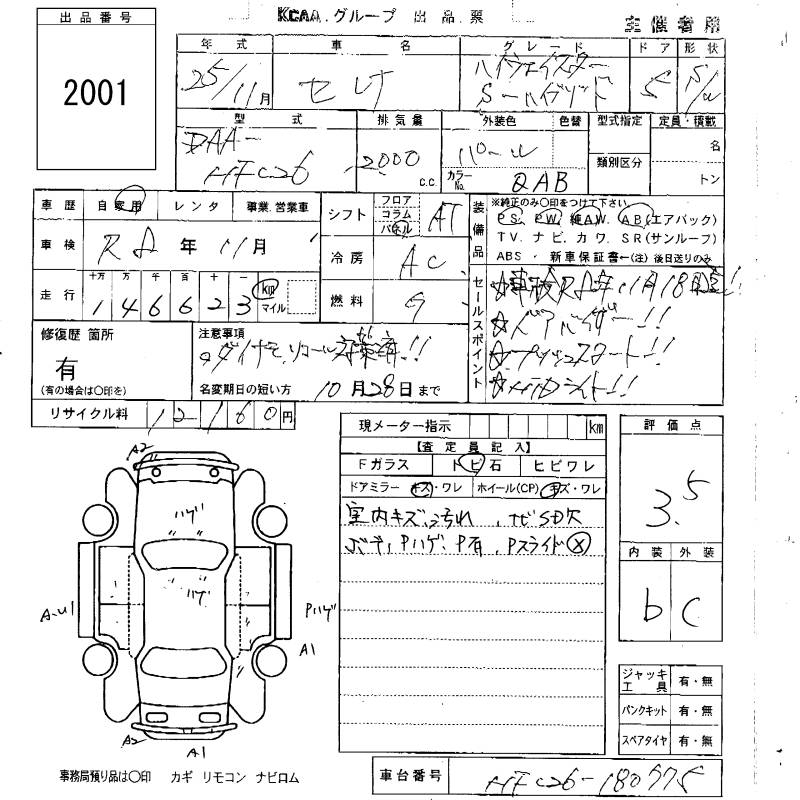 KCAA.グループ 出品票
主催者用
出品番号
2001
年式 車名 グレード ドア 形状
25/11月 セレナ ハイウェイスター 5 S/W
S-ハイブリッド
型式 排気量 外装色 色替 型式指定 定員・積載
DAA- 名
HFC26 2000 C.C. パール 類別区分
カラーNo. QAB トン
車歴 自家用 レンタ 事業.営業車
シフト フロア コラム パネル AT
装備品 ※純正のみ〇印をつけて下さい
PS. PW. 純AW. AB(エアバック)
TV. ナビ. カワ. SR(サンルーフ)
ABS ・ 新車保証書←(注) 後日送りのみ
車検 R8年11月
冷房 AC
走行 十万 万 千 百 十 一 km マイル
146623
燃料 G
セールスポイント
☆車検R8年11月18日迄!!
☆Wエアバッグ!!
☆プッシュスタート!!
☆HIDライト!!
修復歴 箇所
有
(有の場合は〇印を)
注意事項
リコール
名変期日の短い方 10月28日まで
リサイクル料 12160円
現メーター指示 km
【査定員記入】
Fガラス トビ石 ヒビワレ
ドアミラー キズ・ワレ ホイール(CP) キズ・ワレ
室内キズ、汚れ、ナビSD欠
Pハゲ、P有、Pスライド×
評価点
3.5
内装 外装
b C
A2
ハゲ
ハゲ
A-U1
Pハゲ
A1
A2
A1
ジャッキ工具 有・無
パンクキット 有・無
スペアタイヤ 有・無
事務局預り品は〇印 カギ リモコン ナビロム
車台番号 HFC26-180575